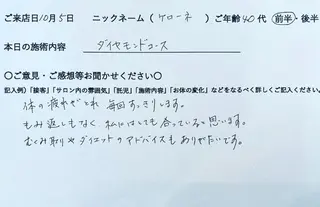 ご来店日10月5日 ニックネーム(ケローネ) ご年齢40代 前半・後半
本日の施術内容 ダイヤモンドコース
〇ご意見・ご感想等お聞かせください〇
記入例)「接客」「サロン内の雰囲気」「託児」「施術内容」「お体の変化」などをなるべく詳しくご記入ください。
体の疲れがとれ 毎回すっきりします。
もみ返しもなく 私にはとても合っていると思います。
むくみ取りやダイエットのアドバイスもありがたいです。